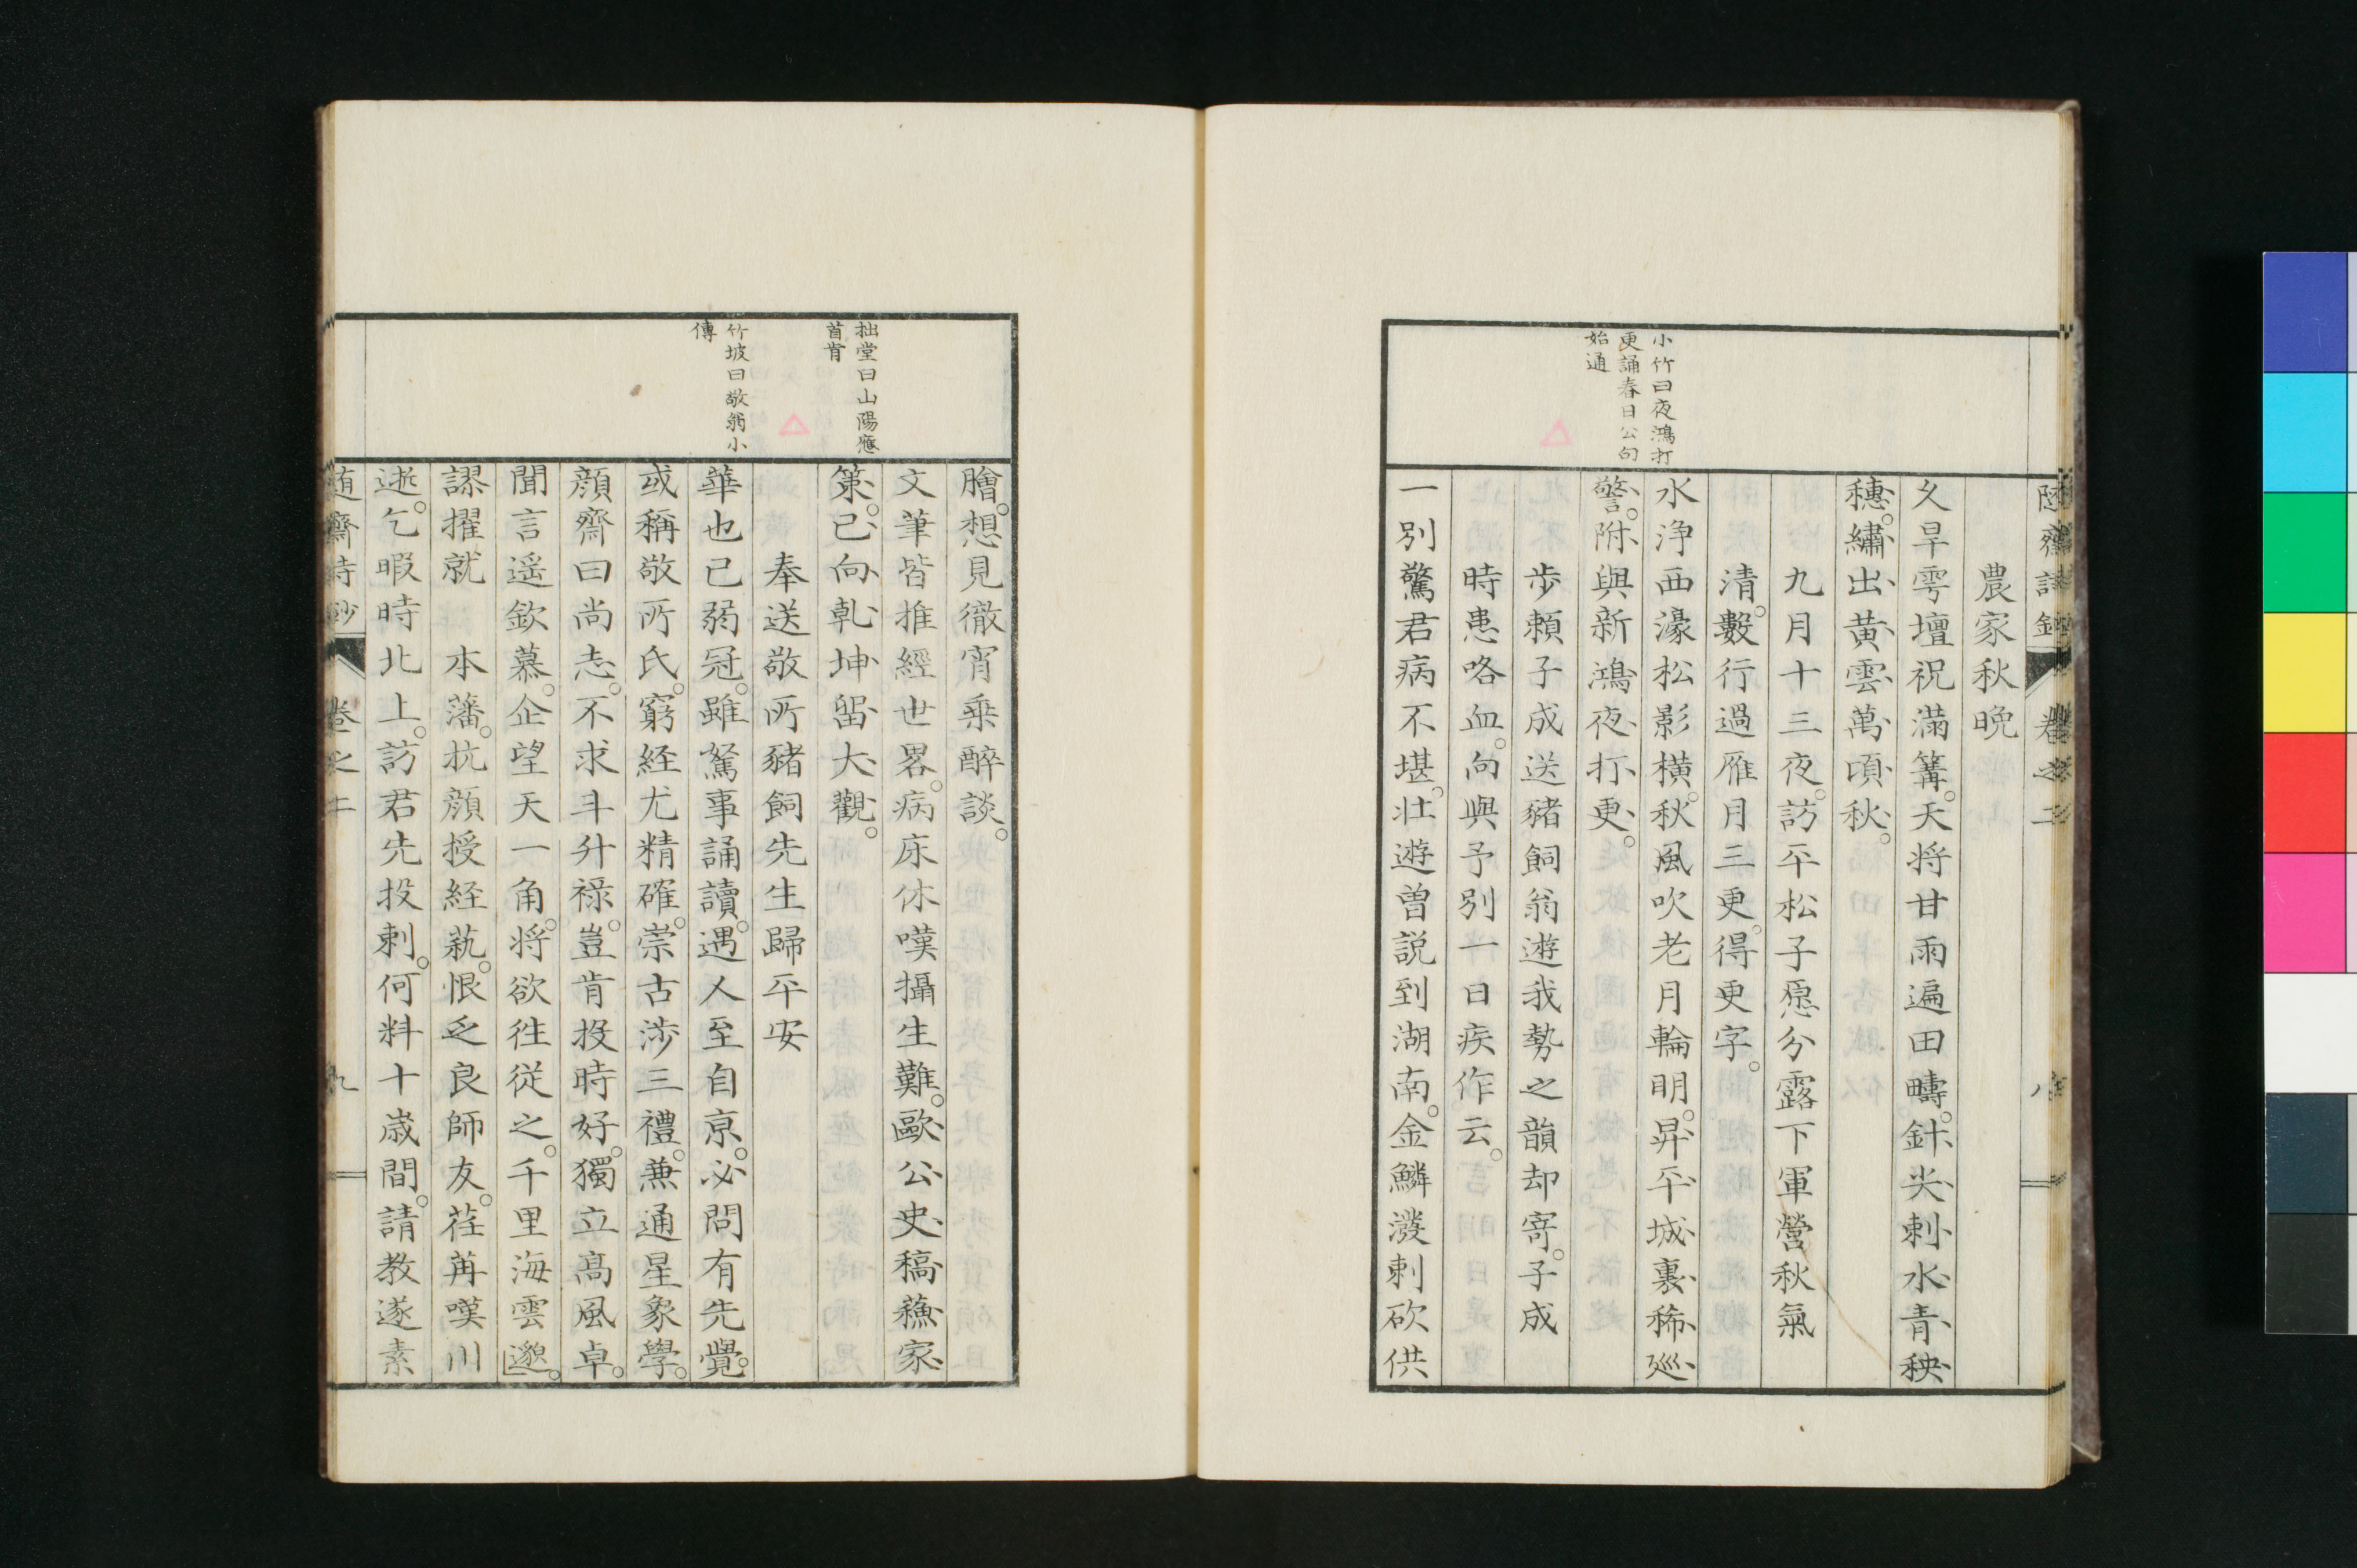 随齋詩鈔 卷之二 八
農家秋晚
久旱雩壇祝滿篝。天將甘雨遍田疇。針尖刺水青秧
穗。繡出黃雲萬頃秋。
九月十三夜。訪平松子愿分露下軍營秋氣
清。數行過雁月三更。得更字。
水淨西濠松影橫。秋風吹老月輪明。昇平城裏稀巡
警。附與新鴻夜打更。
步賴子成送豬飼翁遊我勢之韻却寄。子成
時患咯血。向與予別一日疾作云。
一別驚君病不堪。壯遊曾説到湖南。金鱗潑剌砍供
小竹曰夜鴻打
更誦春日公句
始通
膾。想見徹宵乘醉談。
文筆皆推經世畧。病床休嘆攝生難。歐公史稿蘓家
策。已向乾坤留大觀。
奉送敬所豬飼先生歸平安
華也已弱冠。雖駑事誦讀。遇人至自京。必問有先覺。
或稱敬所氏。窮経尤精確。崇古涉三禮。兼通星象學。
顔齋曰尚志。不求斗升祿。豈肯投時好。獨立高風卓。
聞言遥欽慕。企望天一角。將欲徃從之。千里海雲邈。
謬擢就 本藩。抗顔授経藝。恨乏良師友。荏苒嘆川
逝。乞暇時北上。訪君先投刺。何料十歳間。請教遂素
拙堂曰山陽應
首肯
竹坡曰敬翁小
傳
随齋詩鈔 卷之二 九